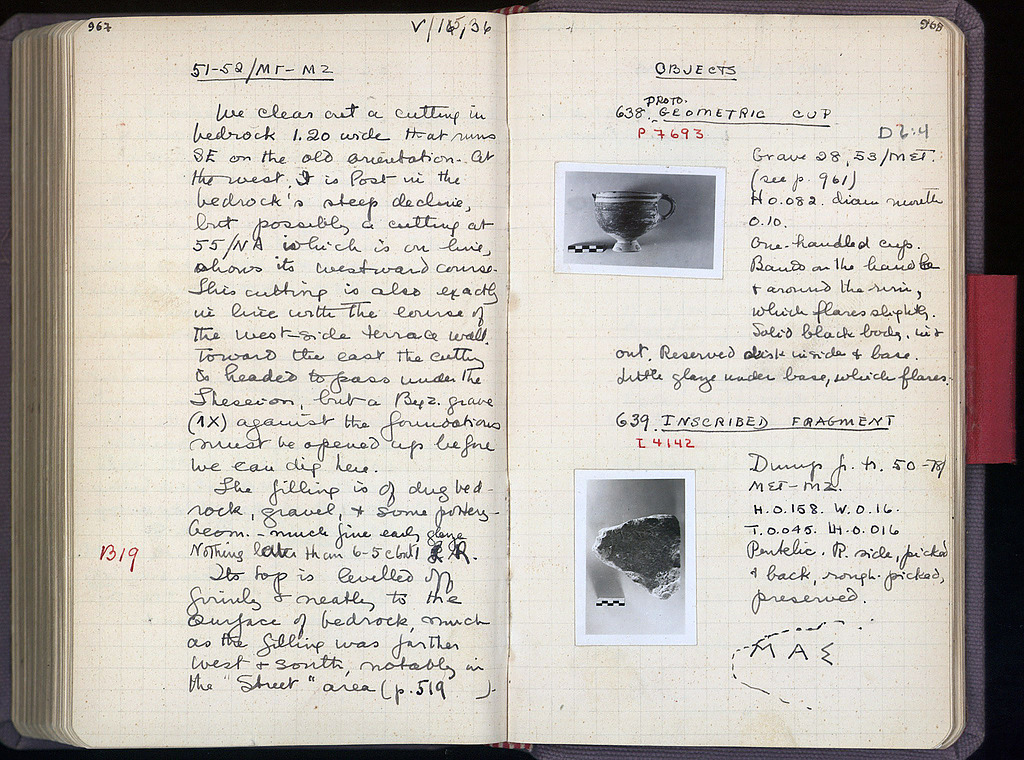 967
V/15,36
51-52/ΜΓ-ΜΖ
We clear out a cutting in
bedrock 1.20 wide that runs
SE on the old orientation. At
the west, it is lost in the
bedrock's steep decline,
but possibly a cutting at
55/ΝΑ which is on line,
shows its westward course.
This cutting is also exactly
in line with the course of
the west-side terrace wall.
Toward the east the cutting
is headed to pass under the
Theseion, but a Byz. grave
(IX) against the foundations
must be opened up before
we can dig here.
The filling is of dug bed-
rock, gravel, & some pottery-
Geom. - much fine early glaze
B19
Nothing later than 6-5 cent
Its top is levelled off
firmly & neatly to the
surface of bedrock, much
as the filling was further
west & south, notably in
the "Street" area (p. 519 ).
968
OBJECTS
638. PROTO. GEOMETRIC CUP
P 7693
Δ 6:4
Grave 28, 53/ΜΣΤ.
(see p. 961)
H 0.082. diam mouth
0.10.
One-handled cup.
Bands on the handle
& around the rim,
which flares slightly.
Solid black body, in &
out. Reserved disk inside & base.
Little glaze under base, which flares.
639. INSCRIBED FRAGMENT
I 4142
Dump fr. tr. 50-78/
ΜΣΤ-ΜΖ.
H. 0.158. W. 0.16.
T. 0.045. LH. 0.016
Pentelic. R. side, picked
& back, rough-picked,
preserved.
ΜΑΣ